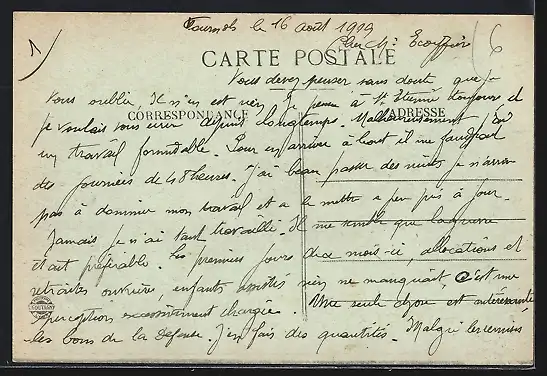 Tournols le 16 Août 1919
1)
6
Cher Mr Ecoiffier
CARTE POSTALE
Vous devez penser sans doute que je
vous oublie, Il n'en est rien, Je pense à St Etienne toujours et
CORRESPONDANCE
ADRESSE
je voulais vous écrire depuis longtemps. Malheureusement j'ai
un travail formidable. Pour en arriver à bout il me faudrait
des journées de 48 heures. J'ai beau passer des nuits je n'arrive
pas à dominer mon travail et a le mettre a peu près à jour.
Jamais je n'ai tant travaillé. Il me semble que la guerre
était préférable. Les premiers jours du mois-ci, allocations et
retraites ouvrière, enfants assistés rien ne manquait, C'est une
perception excessivement chargée. Une seule chose est intéressante
les bons de la Défense. J'en fais des quantités. Malgré les ennuis